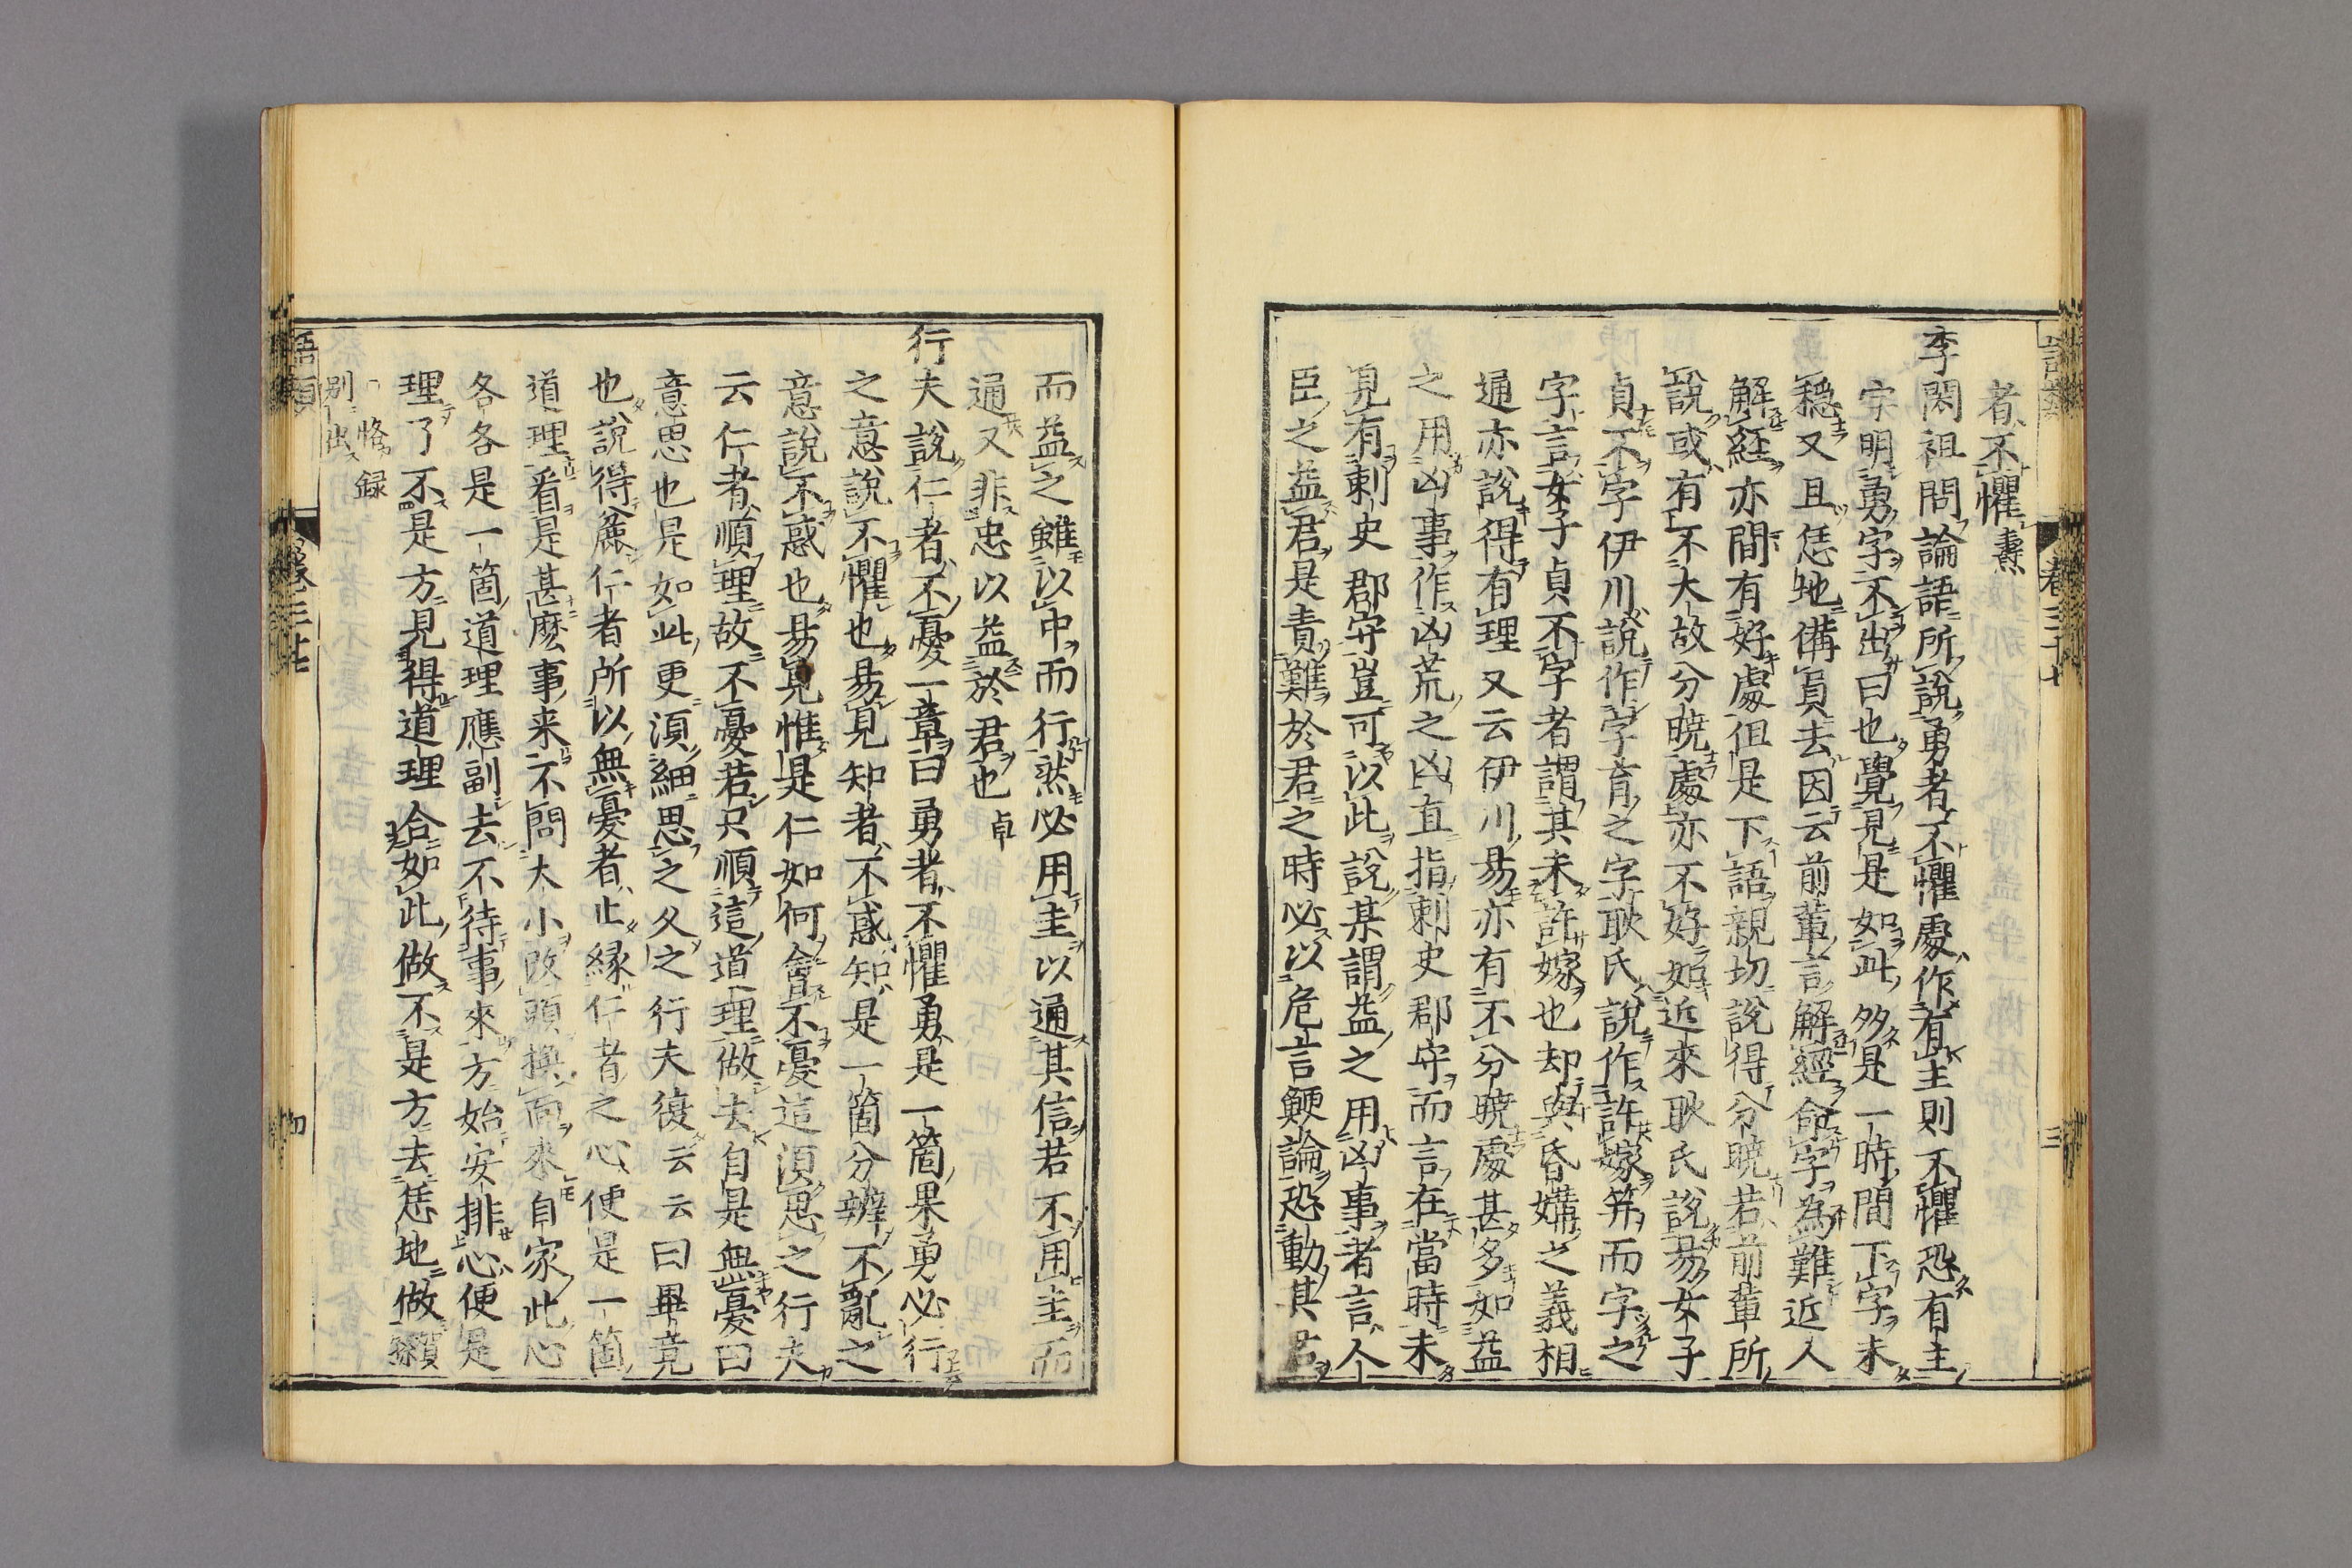 者不懼燾
李閎祖問論語所說勇者不懼處作有主則不懼恐有主
字明勇字不出曰也覺見是如此多是一時間下字未
穩又且恁地備員去因云前輩言解經命字為難近人
解經亦間有好處但是下語親切說得分曉若前輩所
說或有不大故分曉處亦不好如近來耿氏說易女子
貞不字伊川說作字育之字耿氏說作許嫁笄而字之
字言女子貞不字者謂其未許嫁也却與昏媾之義相
通亦說得有理又云伊川易亦有不分曉處甚多如益
之用凶事作凶荒之凶直指刺史郡守而言在當時未
見有刺史郡守豈可以此說某謂益之用凶事者言人
臣之益君是責難於君之時必以危言鯁論恐動其君
而益之雖以中而行然必用圭以通其信若不用圭而
通又非忠以益於君也卓
行夫說仁者不憂一章曰勇者不懼勇是一箇果勇必行
之意說不懼也易見知者不惑知是一箇分辨不亂之
意說不惑也易見惟是仁如何會不憂這須思之行夫
云仁者順理故不憂若只順這道理做去自是無憂曰
意思也是如此更須細思之久之行夫復云云曰畢竟
也說得麄仁者所以無憂者止緣仁者之心便是一箇
道理看是甚麽事来不問大小改頭換面來自家此心
各各是一箇道理應副去不待事來方始安排心便是
理了不是方見得道理合如此做不是方去恁地做賀孫
恪録
別出
語類
卷三十七
三
語類
四